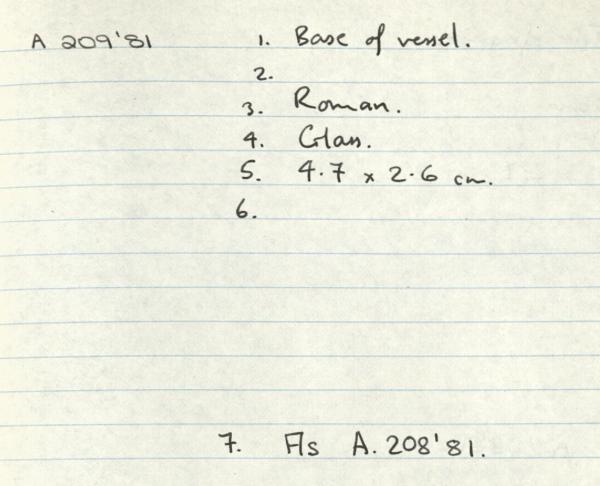 A 209'81 1. Base of vessel.
2.
3. Roman.
4. Glass.
5. 4.7 x 2.6 cm.
6.
7. As A. 208'81.